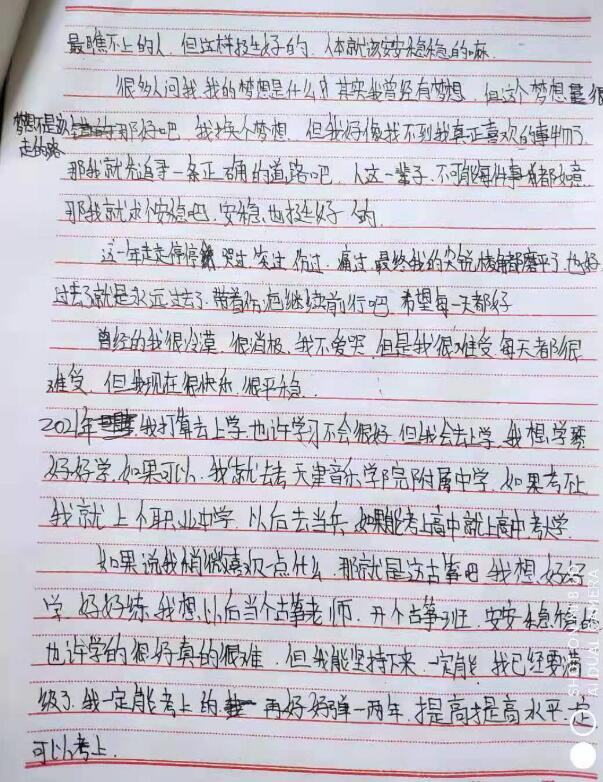 最瞧不上的人，但这样挺好的，人本就该安安稳稳的嘛
很多人问我，我的梦想是什么？其实我曾经有梦想，但这个梦想
梦想不是该走的路
那好吧，我换个梦想，但我好像找不到我真正喜欢的事物了，
那我就先追寻一条正确的道路吧，人这一辈子，不可能每件事都如意
那我就求个安稳吧，安稳也挺好的，
这一年走走停停，哭过，笑过，伤过，痛过，最终我的尖锐棱角都磨平了，也好
过去了就是永远过去了，带着伤疤继续前行吧，希望每一天都好
曾经的我很冷漠，很消极，我不爱哭，但是我很难受，每天都很
难受，但我现在很快乐，很平稳，
2021年我打算去上学，也许学习不会很好，但我会去上学，我想学
好好学，如果可以，我就去天津音乐学院附属中学，如果考不上
我就上个职业中学，以后去当兵，如果能考上高中就上高中，考大学
如果说我稍微喜欢一点什么，那就是这古筝吧，我想，好好
学，好好练，我想，以后当个古筝老师，开个古筝班，安安稳稳的
也许学的很好真的很难，但我能坚持下来，一定能，我已经要
级了，我一定能考上的，再好好弹一两年，提高提高水平，一定
可以考上.
SHOT ON
AI DUAL CAMERA